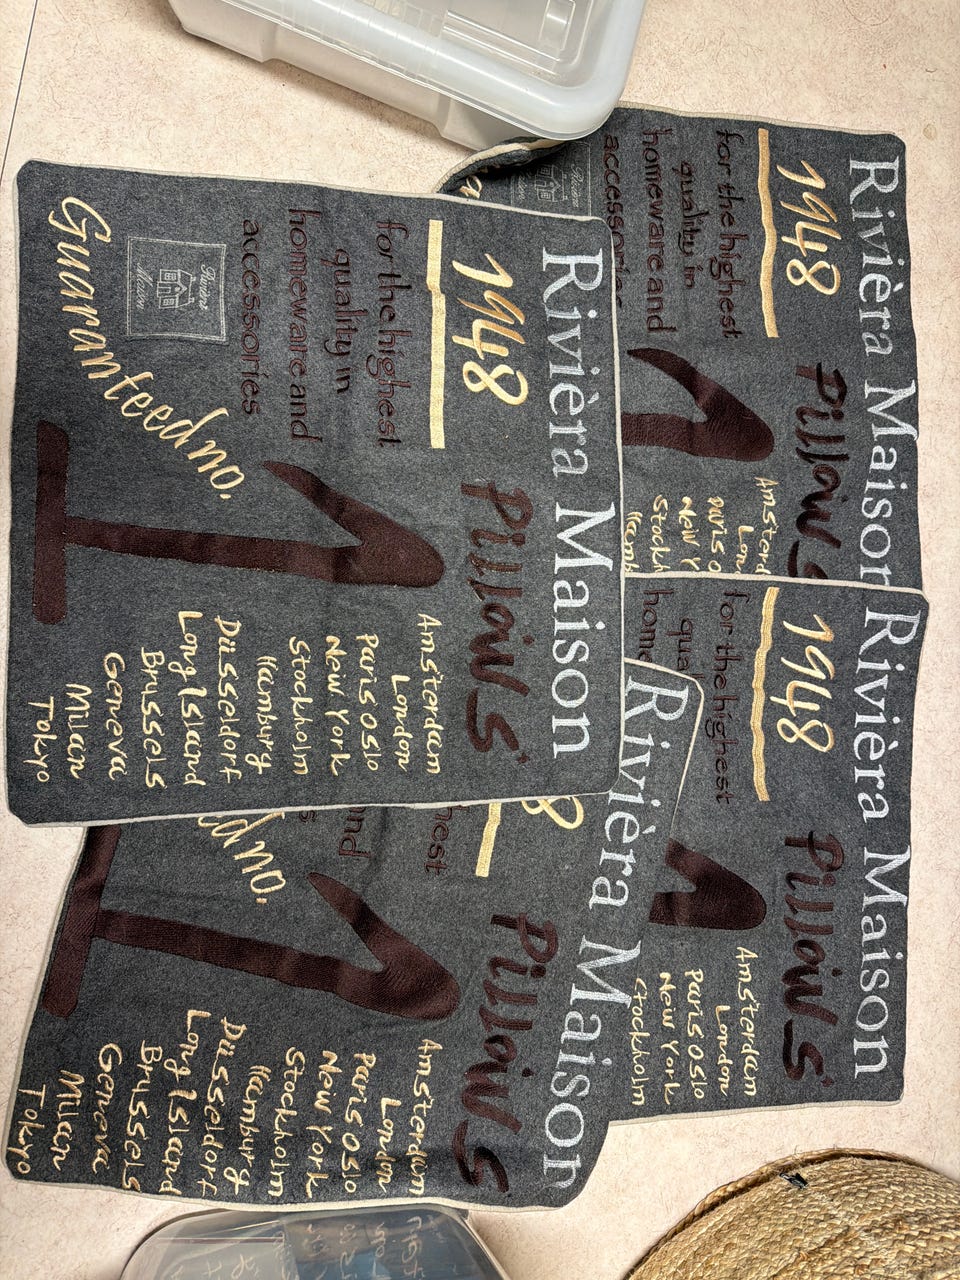 Rivièra Maison
1948
Pillows
for the highest
quality in
homeware and
accessories
Rivièra
Maison
Guaranteed no.
1
Amsterdam
London
Paris Oslo
New York
Stockholm
Hamburg
Düsseldorf
Long Island
Brussels
Geneva
Milan
Tokyo
Rivièra Maison
1948
Pillows
for the highest
quality in
homeware and
accessories
1
Amsterd
Lon
Paris O
New Y
Stockh
Hamb
Rivièra Maison
1948
Pillows
for the highest
qual
home
1
Amsterdam
London
Paris Oslo
New York
Stockholm
Rivièra Maison
8
Pillows
hest
nd
s
ed no.
1
Amsterdam
London
Paris Oslo
New York
Stockholm
Hamburg
Düsseldorf
Long Island
Brussels
Geneva
Milan
Tokyo